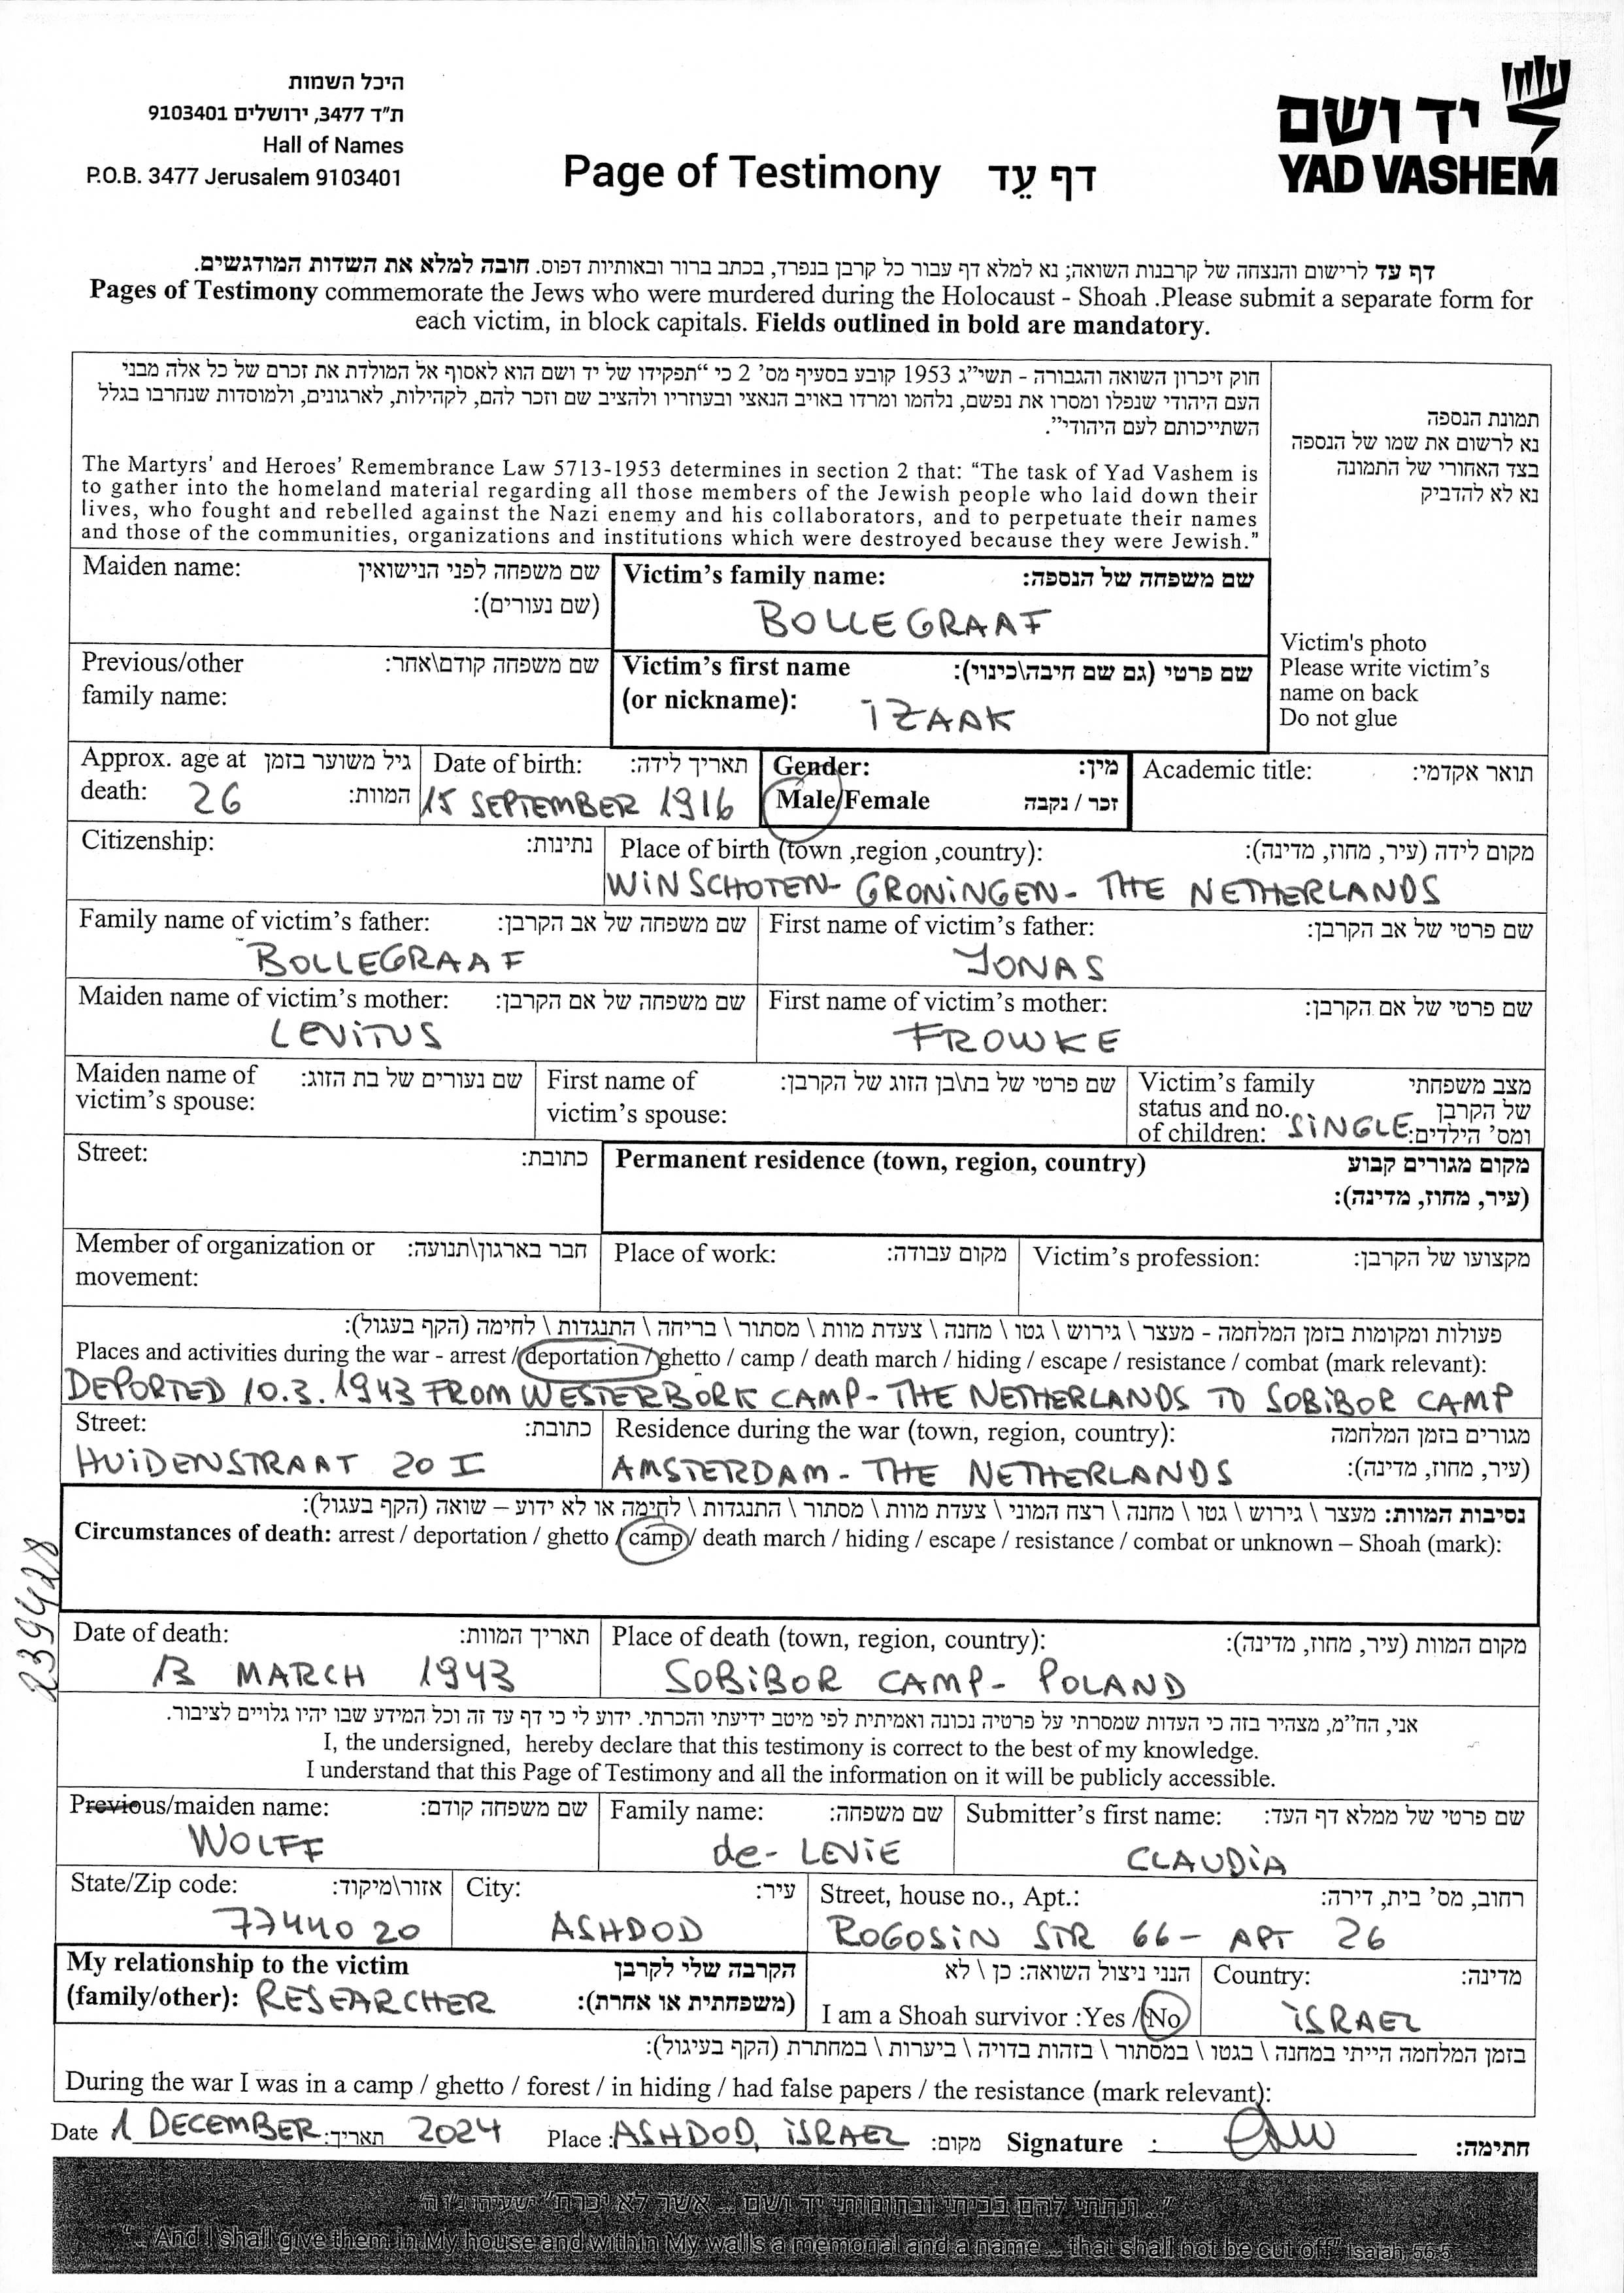 היכל השמות
ת"ד 3477, ירושלים 9103401
Hall of Names
P.O.B. 3477 Jerusalem 9103401
Page of Testimony דף עֵד
יד ושם
YAD VASHEM
דף עד לרישום והנצחה של קרבנות השואה; נא למלא דף עבור כל קרבן בנפרד, בכתב ברור ובאותיות דפוס. חובה למלא את השדות המודגשים.
Pages of Testimony commemorate the Jews who were murdered during the Holocaust - Shoah .Please submit a separate form for
each victim, in block capitals. Fields outlined in bold are mandatory.
חוק זיכרון השואה והגבורה - תשי"ג 1953 קובע בסעיף מס' 2 כי "תפקידו של יד ושם הוא לאסוף אל המולדת את זכרם של כל אלה מבני
העם היהודי שנפלו ומסרו את נפשם, נלחמו ומרדו באויב הנאצי ובעוזריו ולהציב שם וזכר להם, לקהילות, לארגונים, ולמוסדות שנחרבו בגלל
השתייכותם לעם היהודי".
The Martyrs' and Heroes' Remembrance Law 5713-1953 determines in section 2 that: "The task of Yad Vashem is
to gather into the homeland material regarding all those members of the Jewish people who laid down their
lives, who fought and rebelled against the Nazi enemy and his collaborators, and to perpetuate their names
and those of the communities, organizations and institutions which were destroyed because they were Jewish."
תמונת הנספה
נא לרשום את שמו של הנספה
בצד האחורי של התמונה
נא לא להדביק
Victim's photo
Please write victim's
name on back
Do not glue
Maiden name: שם משפחה לפני הנישואין
(שם נעורים):
Victim's family name: שם משפחה של הנספה:
BOLLEGRAAF
Previous/other שם משפחה קודם\אחר:
family name:
Victim's first name שם פרטי (גם שם חיבה\כינוי):
(or nickname): IZAAK
Approx. age at גיל משוער בזמן
death: 26 המוות:
Date of birth: תאריך לידה:
15 SEPTEMBER 1916
Gender: מין:
Male/Female זכר / נקבה
Academic title: תואר אקדמי:
Citizenship: נתינות:
Place of birth (town ,region ,country): מקום לידה (עיר, מחוז, מדינה):
WINSCHOTEN- GRONINGEN- THE NETHERLANDS
Family name of victim's father: שם משפחה של אב הקרבן:
BOLLEGRAAF
First name of victim's father: שם פרטי של אב הקרבן:
JONAS
Maiden name of victim's mother: שם משפחה של אם הקרבן:
LEVITUS
First name of victim's mother: שם פרטי של אם הקרבן:
FROWKE
Maiden name of שם נעורים של בת הזוג:
victim's spouse:
First name of שם פרטי של בת\בן הזוג של הקרבן:
victim's spouse:
Victim's family מצב משפחתי
status and no. של הקרבן
of children: SINGLE ומס' הילדים:
Street: כתובת:
Permanent residence (town, region, country) מקום מגורים קבוע
(עיר, מחוז, מדינה):
Member of organization or חבר בארגון\תנועה:
movement:
Place of work: מקום עבודה:
Victim's profession: מקצועו של הקרבן:
פעולות ומקומות בזמן המלחמה - מעצר \ גירוש \ גטו \ מחנה \ צעדת מוות \ מסתור \ בריחה \ התנגדות \ לחימה (הקף בעגול):
Places and activities during the war - arrest / deportation / ghetto / camp / death march / hiding / escape / resistance / combat (mark relevant):
DEPORTED 10.3.1943 FROM WESTERBORK CAMP- THE NETHERLANDS TO SOBIBOR CAMP
Street: כתובת:
HUIDENSTRAAT 20 I
Residence during the war (town, region, country): מגורים בזמן המלחמה
AMSTERDAM- THE NETHERLANDS (עיר, מחוז, מדינה):
נסיבות המוות: מעצר \ גירוש \ גטו \ מחנה \ רצח המוני \ צעדת מוות \ מסתור \ התנגדות \ לחימה או לא ידוע – שואה (הקף בעגול):
Circumstances of death: arrest / deportation / ghetto / camp / death march / hiding / escape / resistance / combat or unknown – Shoah (mark):
239428
Date of death: תאריך המוות:
13 MARCH 1943
Place of death (town, region, country): מקום המוות (עיר, מחוז, מדינה):
SOBIBOR CAMP- POLAND
אני, הח"מ, מצהיר בזה כי העדות שמסרתי על פרטיה נכונה ואמיתית לפי מיטב ידיעתי והכרתי. ידוע לי כי דף עד זה וכל המידע שבו יהיו גלויים לציבור.
I, the undersigned, hereby declare that this testimony is correct to the best of my knowledge.
I understand that this Page of Testimony and all the information on it will be publicly accessible.
Previous/maiden name: שם משפחה קודם:
WOLFF
Family name: שם משפחה:
de- LEVIE
Submitter's first name: שם פרטי של ממלא דף העד:
CLAUDIA
State/Zip code: אזור\מיקוד:
7744020
City: עיר:
ASHDOD
Street, house no., Apt.: רחוב, מס' בית, דירה:
ROGOSIN STR 66- APT 26
My relationship to the victim הקרבה שלי לקרבן
(family/other): RESEARCHER (משפחתית או אחרת):
הנני ניצול השואה: כן \ לא
I am a Shoah survivor :Yes / No
Country: מדינה:
ISRAEL
בזמן המלחמה הייתי במחנה \ בגטו \ במסתור \ בזהות בדויה \ ביערות \ במחתרת (הקף בעיגול):
During the war I was in a camp / ghetto / forest / in hiding / had false papers / the resistance (mark relevant):
Date 1 DECEMBER תאריך: 2024 Place : ASHDOD, ISRAEL מקום: Signature : חתימה:
"...ונתתי להם בביתי ובחומותי יד ושם ... אשר לא יכרת" ישעיהו נ"ו ה'
"... And I shall give them in My house and within My walls a memorial and a name ... that shall not be cut off" Isaiah, 56-5